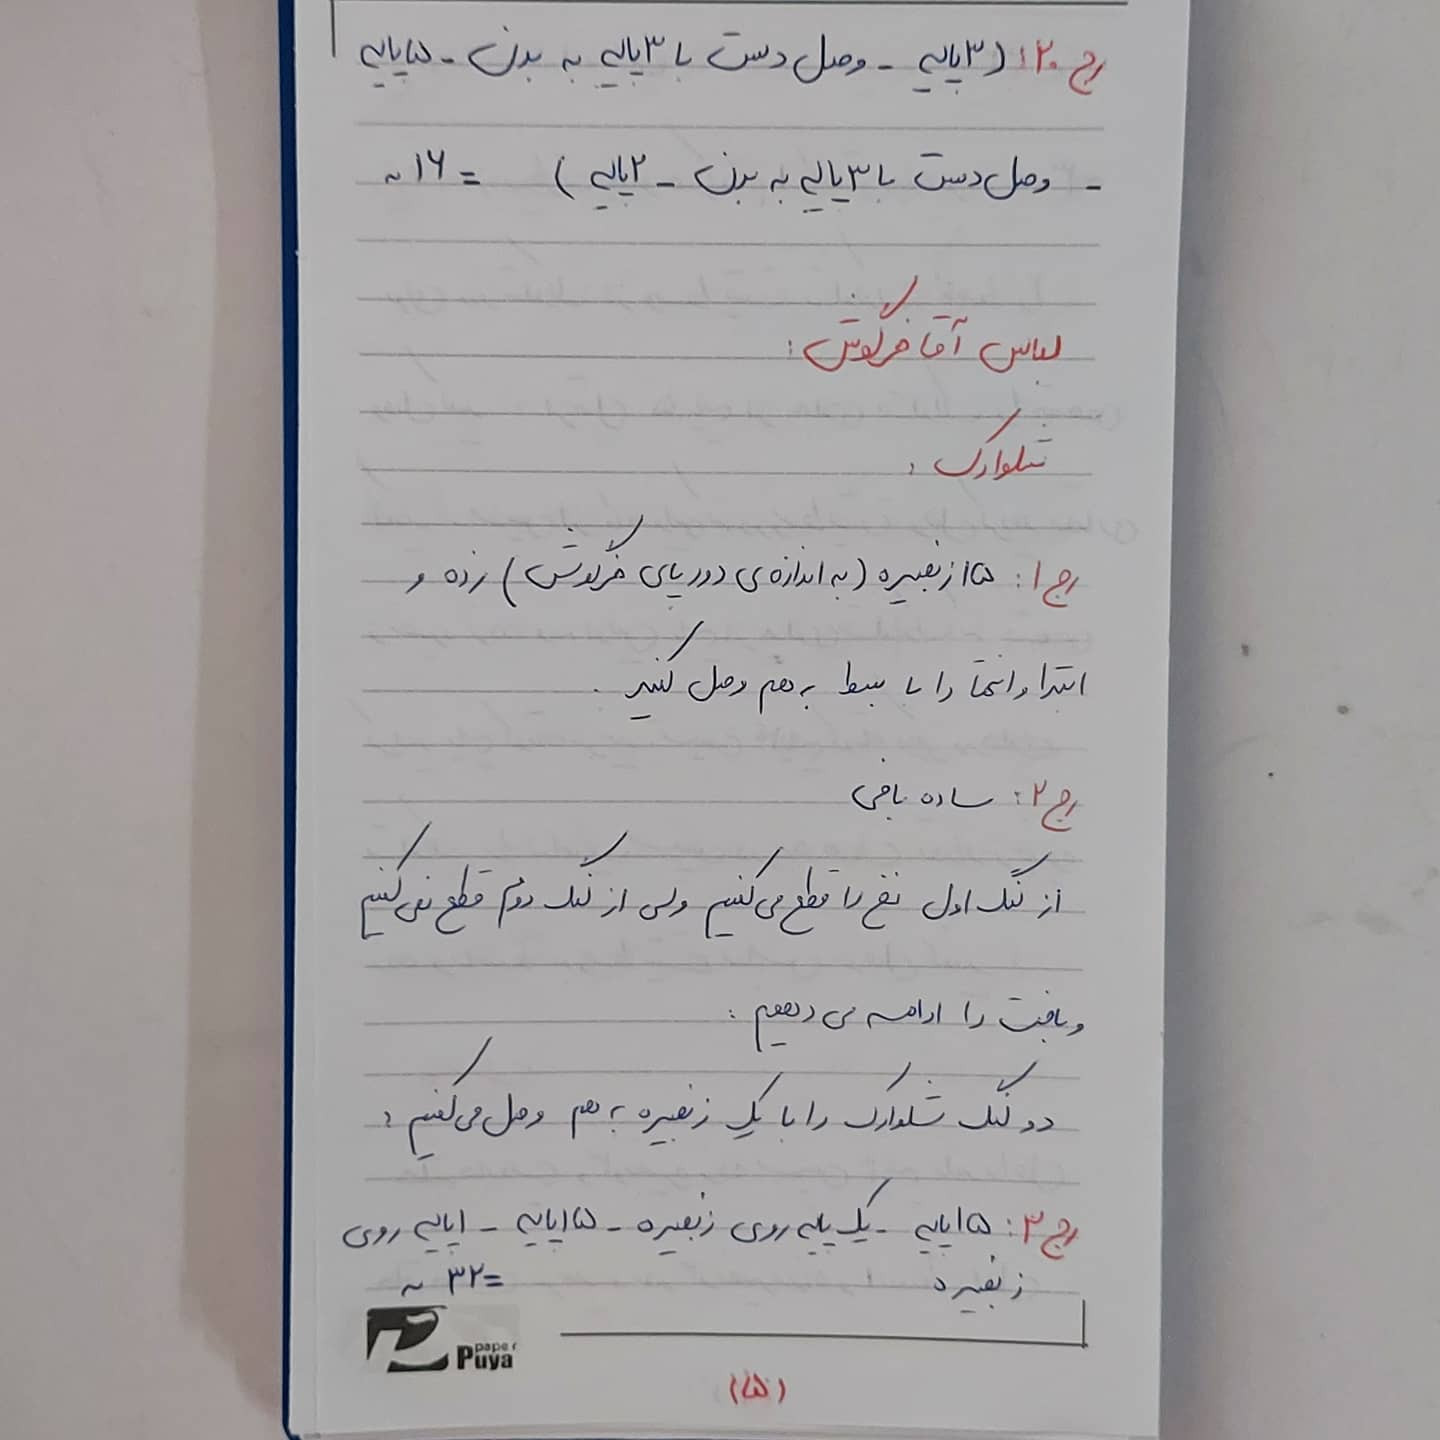 رج ۲۰: (۳پایه - وصل دست با ۳پایه به بدن - ۵پایه
- وصل دست با ۳پایه به بدن - ۲پایه) = ۱۶ ~
لباس آقا خرگوش:
شلوارک:
رج ۱: ۱۵ زنجیره (به اندازه‌ی دور پای خرگوش) زده و
ابتدا و انتها را با بسط به هم وصل کنید.
رج ۲: ساده بافی
از لنگ اول نخ را قطع می‌کنیم ولی از لنگ دوم قطع نمی‌کنیم
و بافت را ادامه می‌دهیم:
دو لنگ شلوارک را با یک زنجیره به هم وصل می‌کنیم:
رج ۳: ۱۵پایه - یک پایه روی زنجیره - ۱۵پایه - ۱پایه روی
زنجیره = ۳۲ ~
paper
Puya
(۱۵)